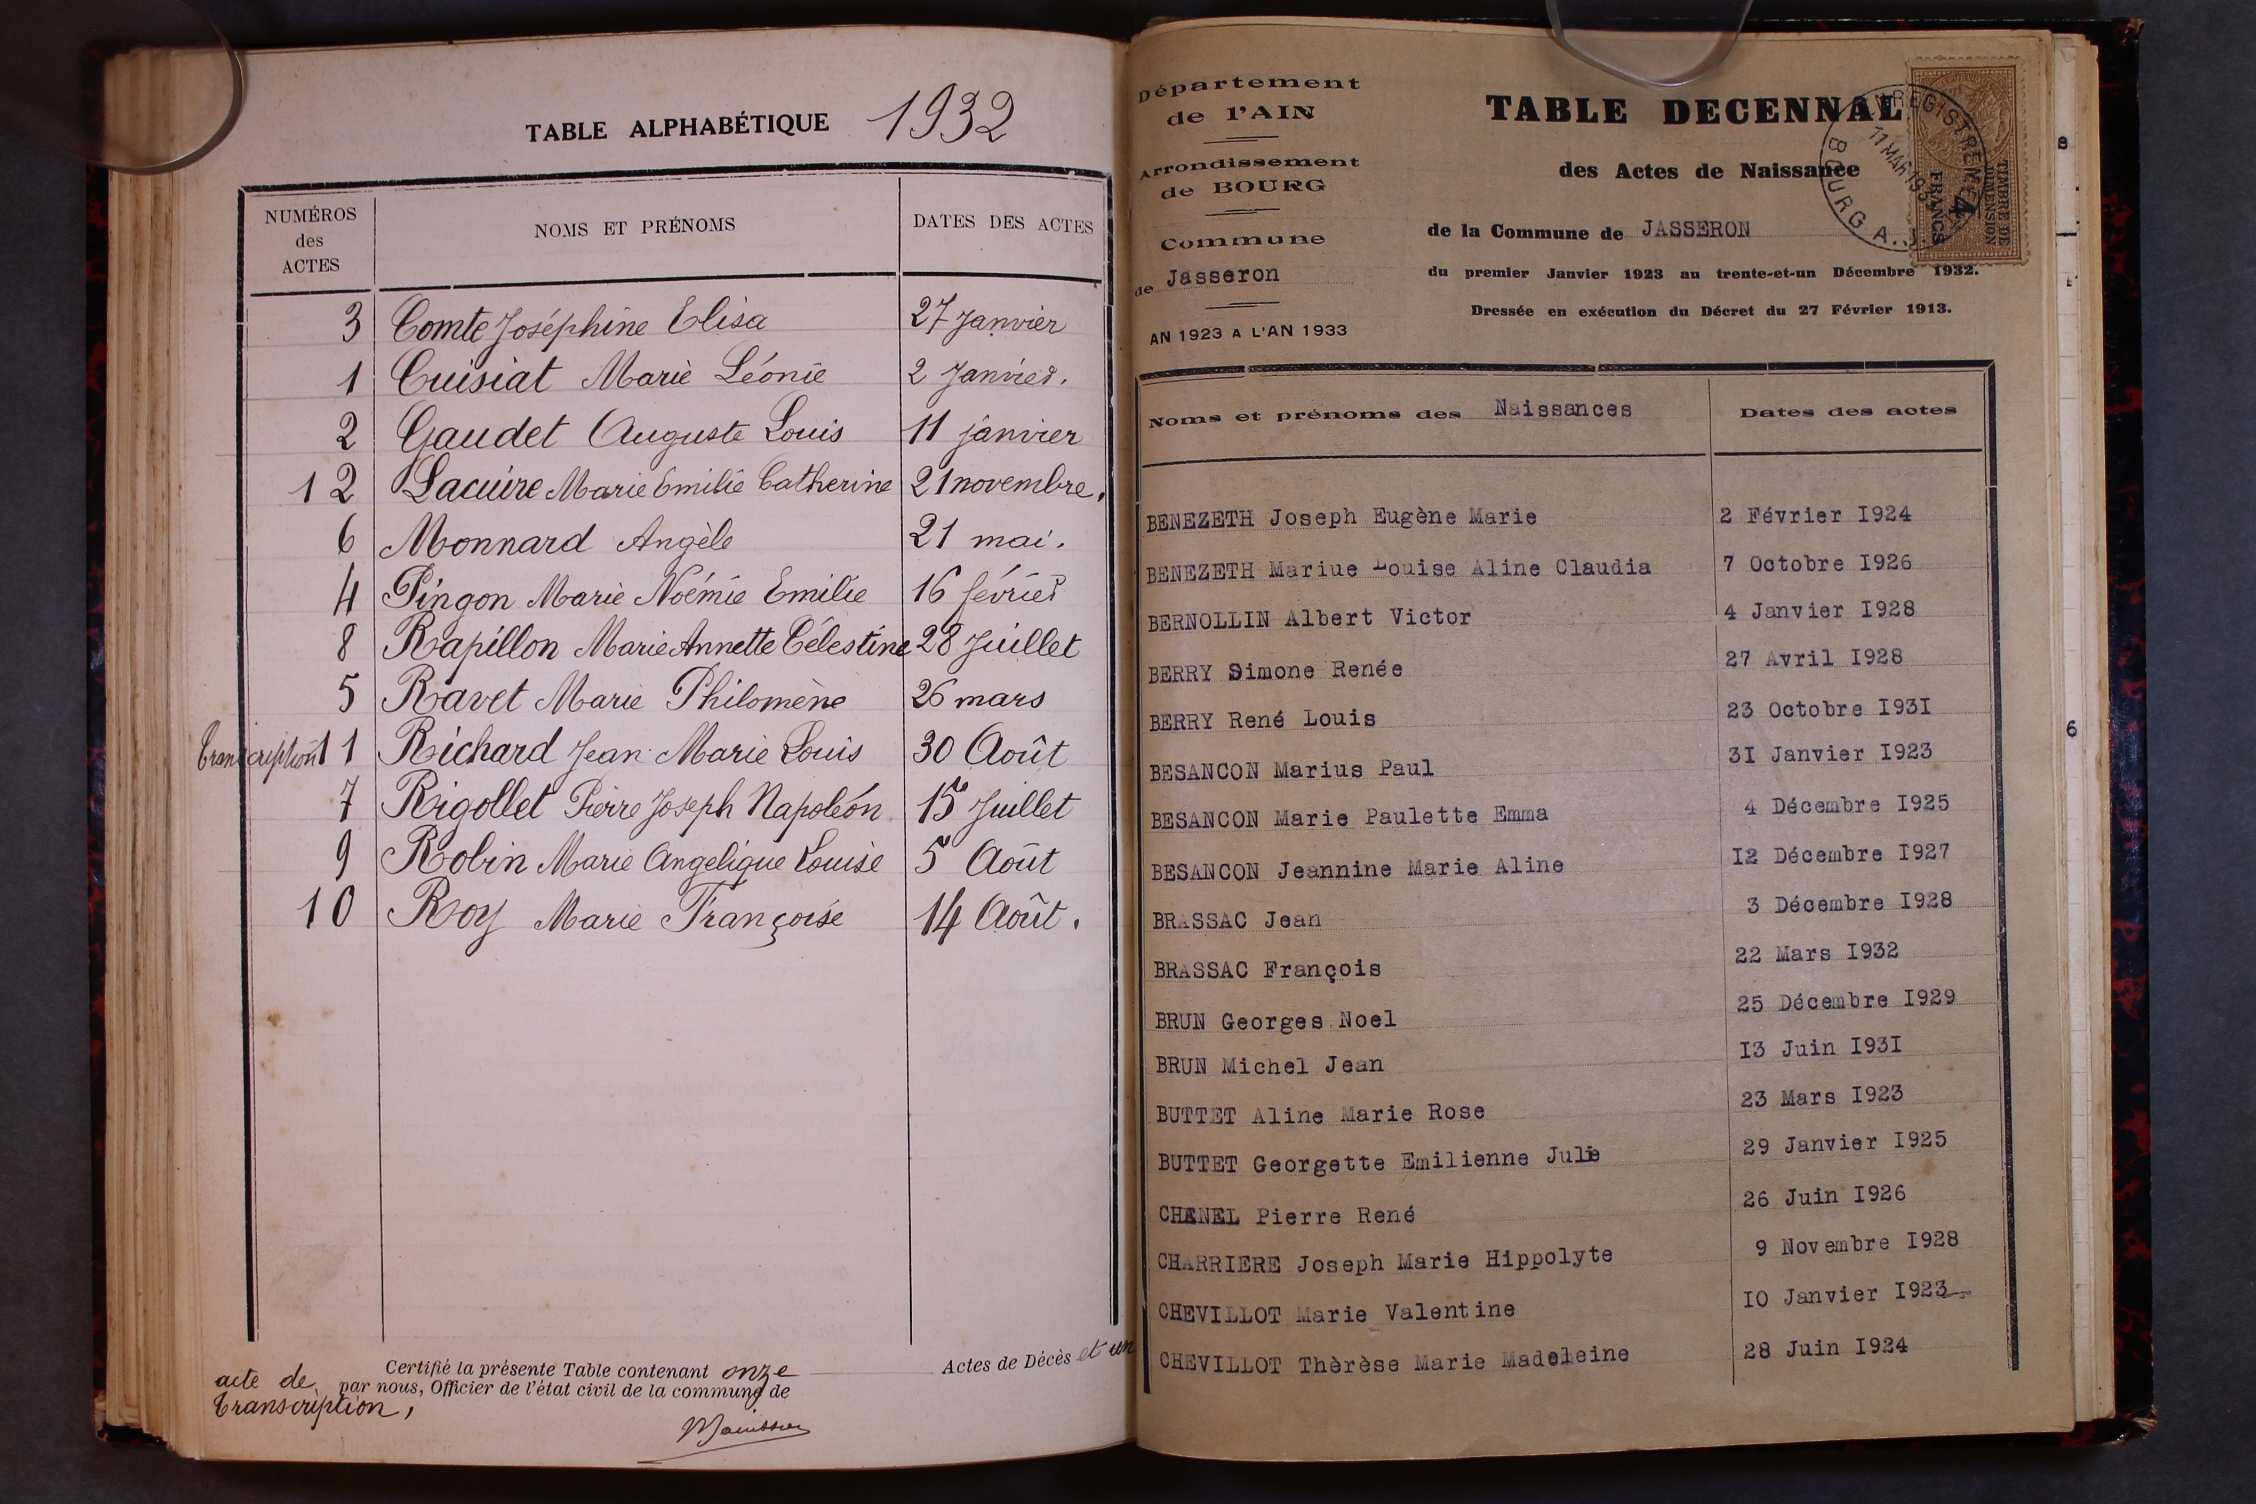 TABLE ALPHABÉTIQUE 1932
NUMÉROS des ACTES NOMS ET PRÉNOMS DATES DES ACTES
3 Comte Joséphine Elisa 27 Janvier
1 Cuisiat Marie Léonie 2 Janvier.
2 Gaudet Auguste Louis 11 janvier
12 Lacuire Marie Emilie Catherine 21 novembre.
6 Monnard Angèle 21 mai.
4 Pingon Marie Noémie Emilie 16 février
8 Rapillon Marie Annette Célestine 28 Juillet
5 Ravet Marie Philomène 26 mars
transcription 11 Richard Jean Marie Louis 30 Août
7 Rigollet Pierre Joseph Napoléon 15 Juillet
9 Robin Marie Angelique Louise 5 Août
10 Roy Marie Françoise 14 Août.
Certifié la présente Table contenant onze Actes de Décès et un
acte de par nous, Officier de l'état civil de la commune de
transcription,
Département
de l'AIN
Arrondissement
de BOURG
Commune
de Jasseron
AN 1923 A L'AN 1933
TABLE DECENNAL
des Actes de Naissance
de la Commune de JASSERON
du premier Janvier 1923 au trente-et-un Décembre 1932.
Dressée en exécution du Décret du 27 Février 1913.
ENREGISTREMENT
11 MAR 193
BOURG A.
TIMBRE DE
DIMENSION
4
FRANCS
Noms et prénoms des Naissances Dates des actes
BENEZETH Joseph Eugène Marie 2 Février I924
BENEZETH Mariue Louise Aline Claudia 7 Octobre I926
BERNOLLIN Albert Victor 4 Janvier I928
BERRY Simone Renée 27 Avril I928
BERRY René Louis 23 Octobre I93I
BESANCON Marius Paul 3I Janvier I923
BESANCON Marie Paulette Emma 4 Décembre I925
BESANCON Jeannine Marie Aline I2 Décembre I927
BRASSAC Jean 3 Décembre I928
BRASSAC François 22 Mars I932
BRUN Georges Noel 25 Décembre I929
BRUN Michel Jean I3 Juin I93I
BUTTET Aline Marie Rose 23 Mars I923
BUTTET Georgette Emilienne Julie 29 Janvier I925
CHANEL Pierre René 26 Juin I926
CHARRIERE Joseph Marie Hippolyte 9 Novembre I928
CHEVILLOT Marie Valentine IO Janvier I923
CHEVILLOT Thèrèse Marie Madeleine 28 Juin I924
8
6